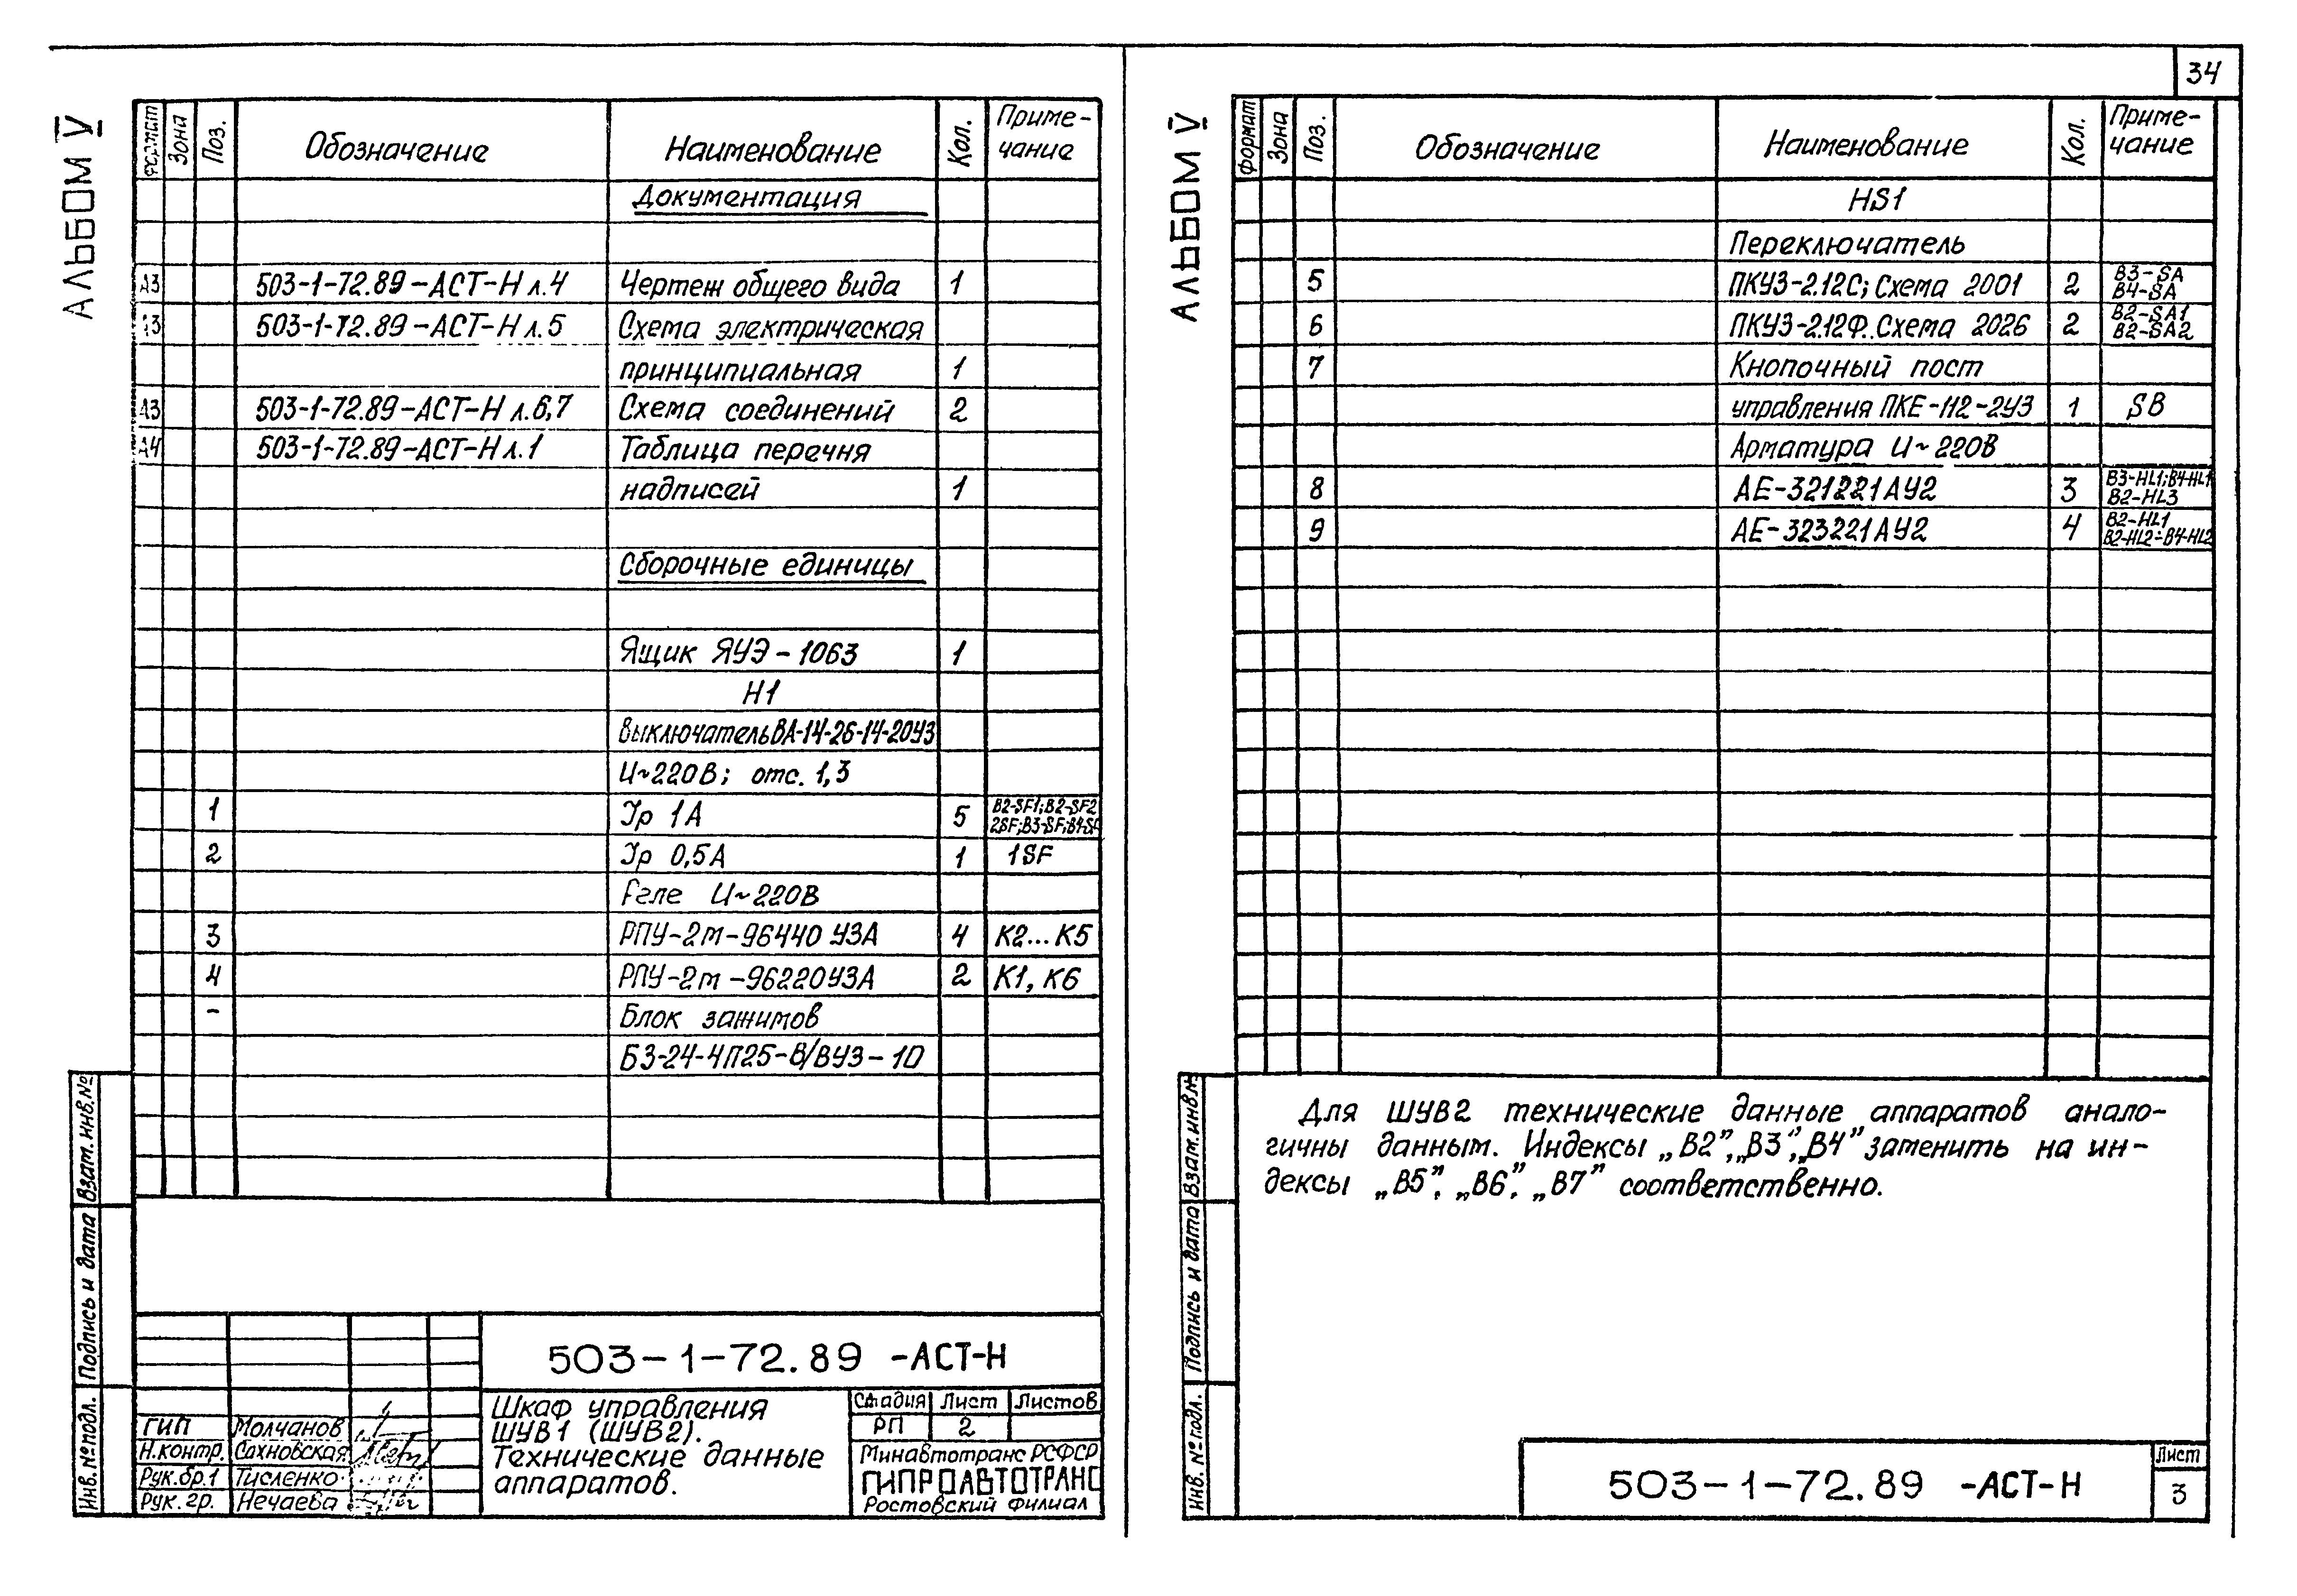 34
АЛЬБОМ V
Формат Зона Поз. Обозначение Наименование Кол. Приме-
чание
Документация
А3 503-1-72.89-АСТ-Н л.4 Чертеж общего вида 1
А3 503-1-72.89-АСТ-Н л.5 Схема электрическая
принципиальная 1
А3 503-1-72.89-АСТ-Н л.6,7 Схема соединений 2
А4 503-1-72.89-АСТ-Н л.1 Таблица перечня
надписей 1
Сборочные единицы
Ящик ЯУЭ-1063 1
Н1
Выключатель ВА-14-26-14-20У3
U~220В; отс. 1,3
1 Iр 1А 5 В2-SF1; В2-SF2
2SF; В3-SF; В4-SF
2 Iр 0,5А 1 1SF
Реле U~220В
3 РПУ-2м-96440 У3А 4 К2...К5
4 РПУ-2м-96220У3А 2 К1, К6
- Блок зажимов
БЗ-24-4П25-В/ВУ3-10
Взам. инв. №
Подпись и дата
Инв. № подл.
503-1-72.89 -АСТ-Н
Шкаф управления
ШУВ1 (ШУВ2).
Технические данные
аппаратов.
Стадия Лист Листов
РП 2
Минавтотранс РСФСР
ГИПРОАВТОТРАНС
Ростовский филиал
ГИП Молчанов
Н.контр. Сахновская
Рук.бр.1 Тисленко
Рук. гр. Нечаева
АЛЬБОМ V
Формат Зона Поз. Обозначение Наименование Кол. Приме-
чание
HS1
Переключатель
5 ПКУ3-2.12С; Схема 2001 2 В3-SA
В4-SA
6 ПКУ3-2.12Ф. Схема 2026 2 В2-SA1
В2-SA2
7 Кнопочный пост
управления ПКЕ-112-2У3 1 SB
Арматура U~220В
8 АЕ-321221АУ2 3 В3-HL1; В4-HL1
В2-HL3
9 АЕ-323221АУ2 4 В2-HL1
В2-HL2÷В4-HL2
Для ШУВ2 технические данные аппаратов анало-
гичны данным. Индексы „В2”, „В3”, „В4” заменить на ин-
дексы „В5”, „В6”, „В7” соответственно.
Взам. инв. №
Подпись и дата
Инв. № подл.
503-1-72.89 -АСТ-Н
Лист
3